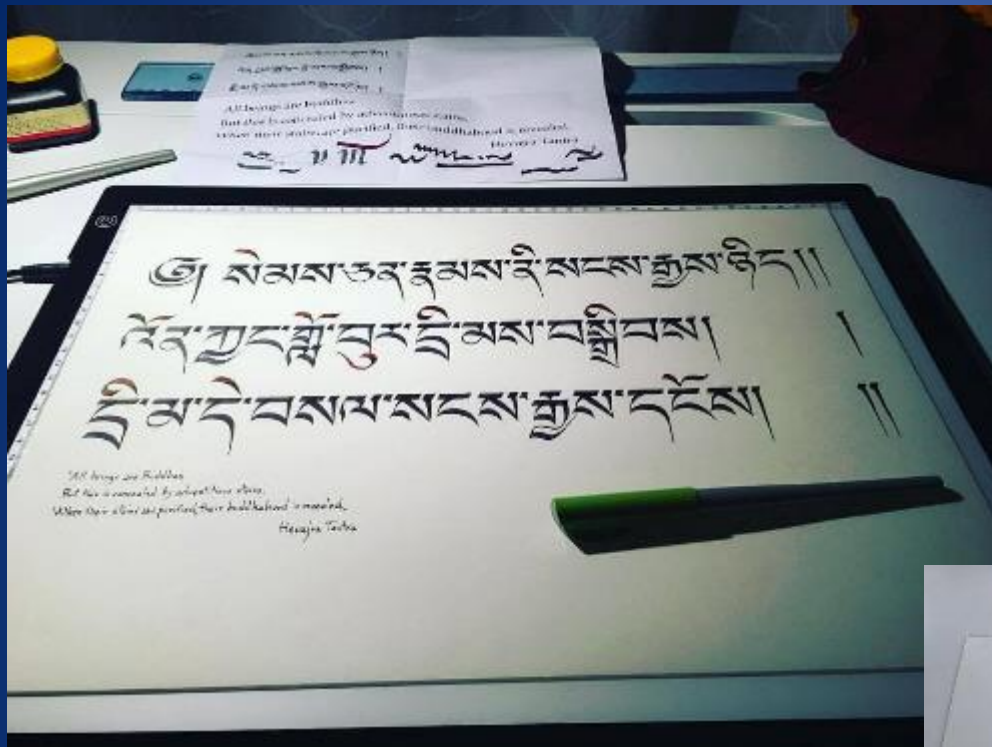 All beings are buddhas
But this is concealed by adventitious stains.
When their stains are purified, their buddhahood is revealed.
Hevajra Tantra
༄། སེམས་ཅན་རྣམས་ནི་སངས་རྒྱས་ཉིད།།
འོན་ཀྱང་གློ་བུར་དྲི་མས་བསྒྲིབས། །
དྲི་མ་དེ་བསལ་སངས་རྒྱས་དངོས། །།
"All beings are Buddhas
But this is concealed by adventitious stains.
When their stains are purified, their buddhahood is revealed.
Hevajra Tantra